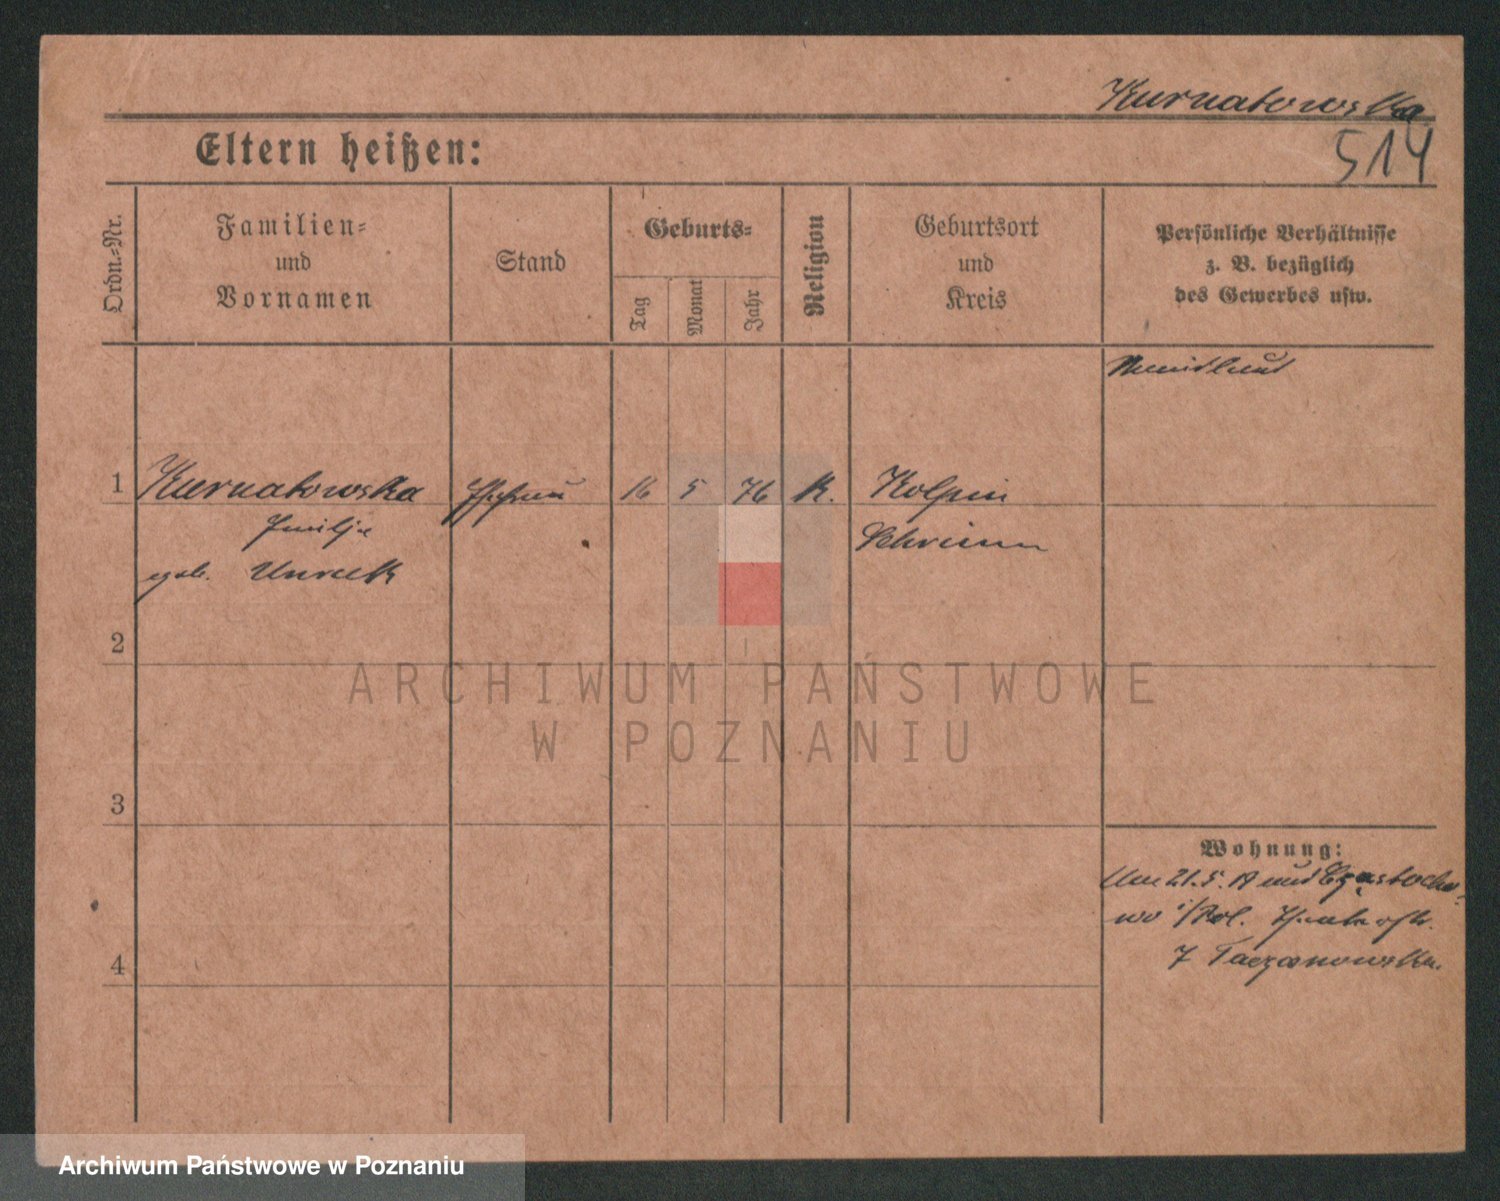 Kurnatowska
514
Eltern heißen:
Ordn.-Nr.
Familien-
und
Vornamen
Stand
Geburts-
Tag
Monat
Jahr
Religion
Geburtsort
und
Kreis
Persönliche Verhältnisse
z. B. bezüglich
des Gewerbes usw.
1 Kurnatowska 16 5 76 K. Kolpin
Emilja Schrimm
geb. Unruck
2
3
4
Wohnung:
Am 21.5.19 Czenstocho-
wo i/Pol.
7 Taczanowska.
ARCHIWUM PAŃSTWOWE
W POZNANIU
Archiwum Państwowe w Poznaniu